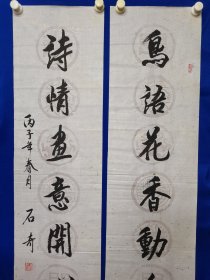 鳥語花香動
詩情畫意開
丙子年春月
石奇